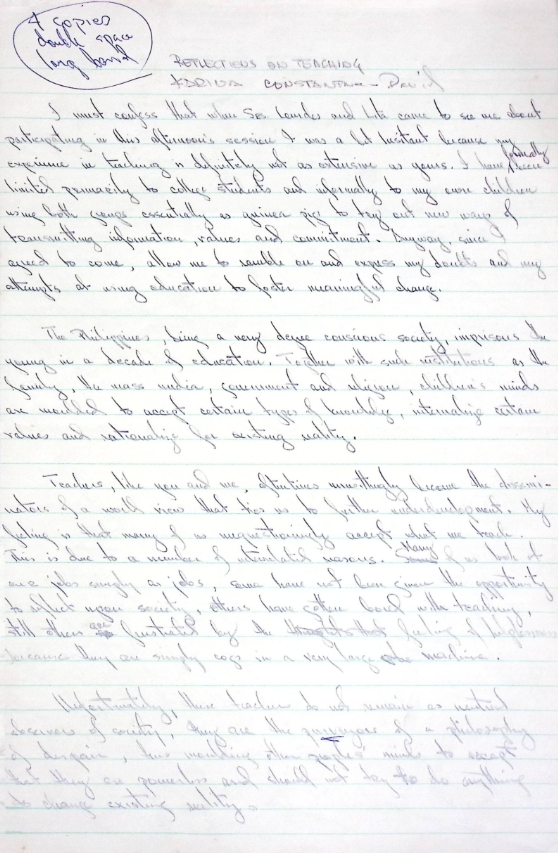 4 copies
double space
long bond
REFLECTIONS ON TEACHING
KARINA CONSTANTINO - David
I must confess that when Sos Lourdes and Lita came to see me about
participating in this afternoon's session I was a bit hesitant because my
experience in teaching is definitely not as extensive as yours. I have formally been
limited primarily to college students and informally to my own children
using both groups essentially as guinea pigs to try out new ways of
transmitting information, values and commitment. Anyway, since I
agreed to come, allow me to ramble on and express my doubts and my
attempts at using education to foster meaningful change.
The Philippines, being a very degree conscious society, imprisons the
young in a decade of education. Together with such institutions as the
family, the mass media, government and religion, children's minds
are moulded to accept certain types of knowledge, internalize certain
values and rationalize for existing reality.
Teachers, like you and me, oftentimes unwittingly become the dissemi-
nators of a world view that ties us to further underdevelopment. My
feeling is that many of us unquestioningly accept what we teach.
This is due to a number of interrelated reasons. Many of us look at
our jobs simply as jobs, some have not been given the opportunity
to reflect upon society, others have gotten bored with teaching,
still others are frustrated by the feeling of helplessness
because they are simply cogs in a very large machine.
Unfortunately, these teachers do not remain as neutral
observers of society, they are the purveyors of a philosophy
of despair, thus moulding other peoples' minds to accept
that they are powerless and should not try to do anything
to change existing reality.